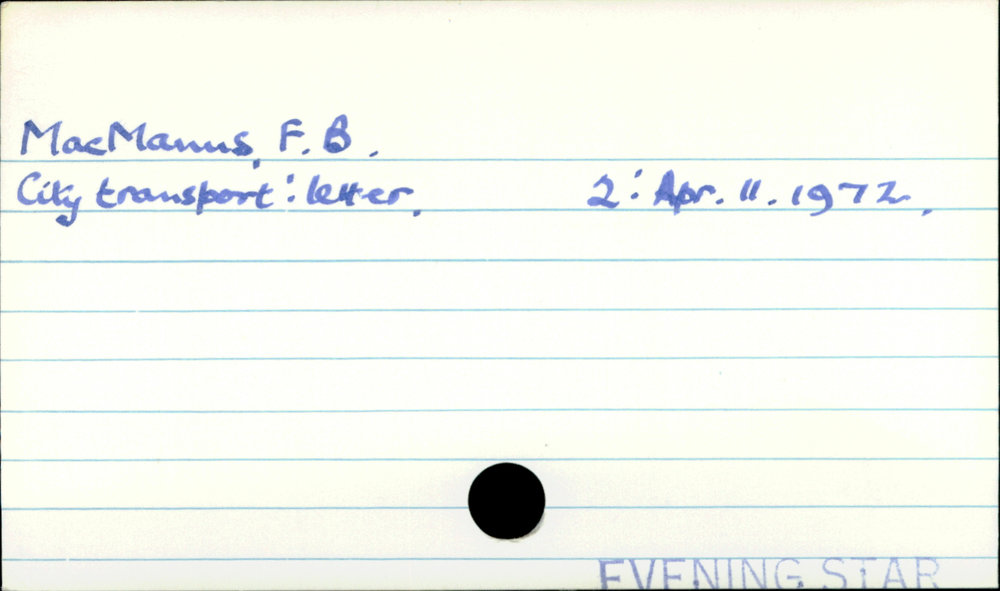 MacManus, F. B.
City transport: letter. 2: Apr. 11. 1972.
EVENING STAR